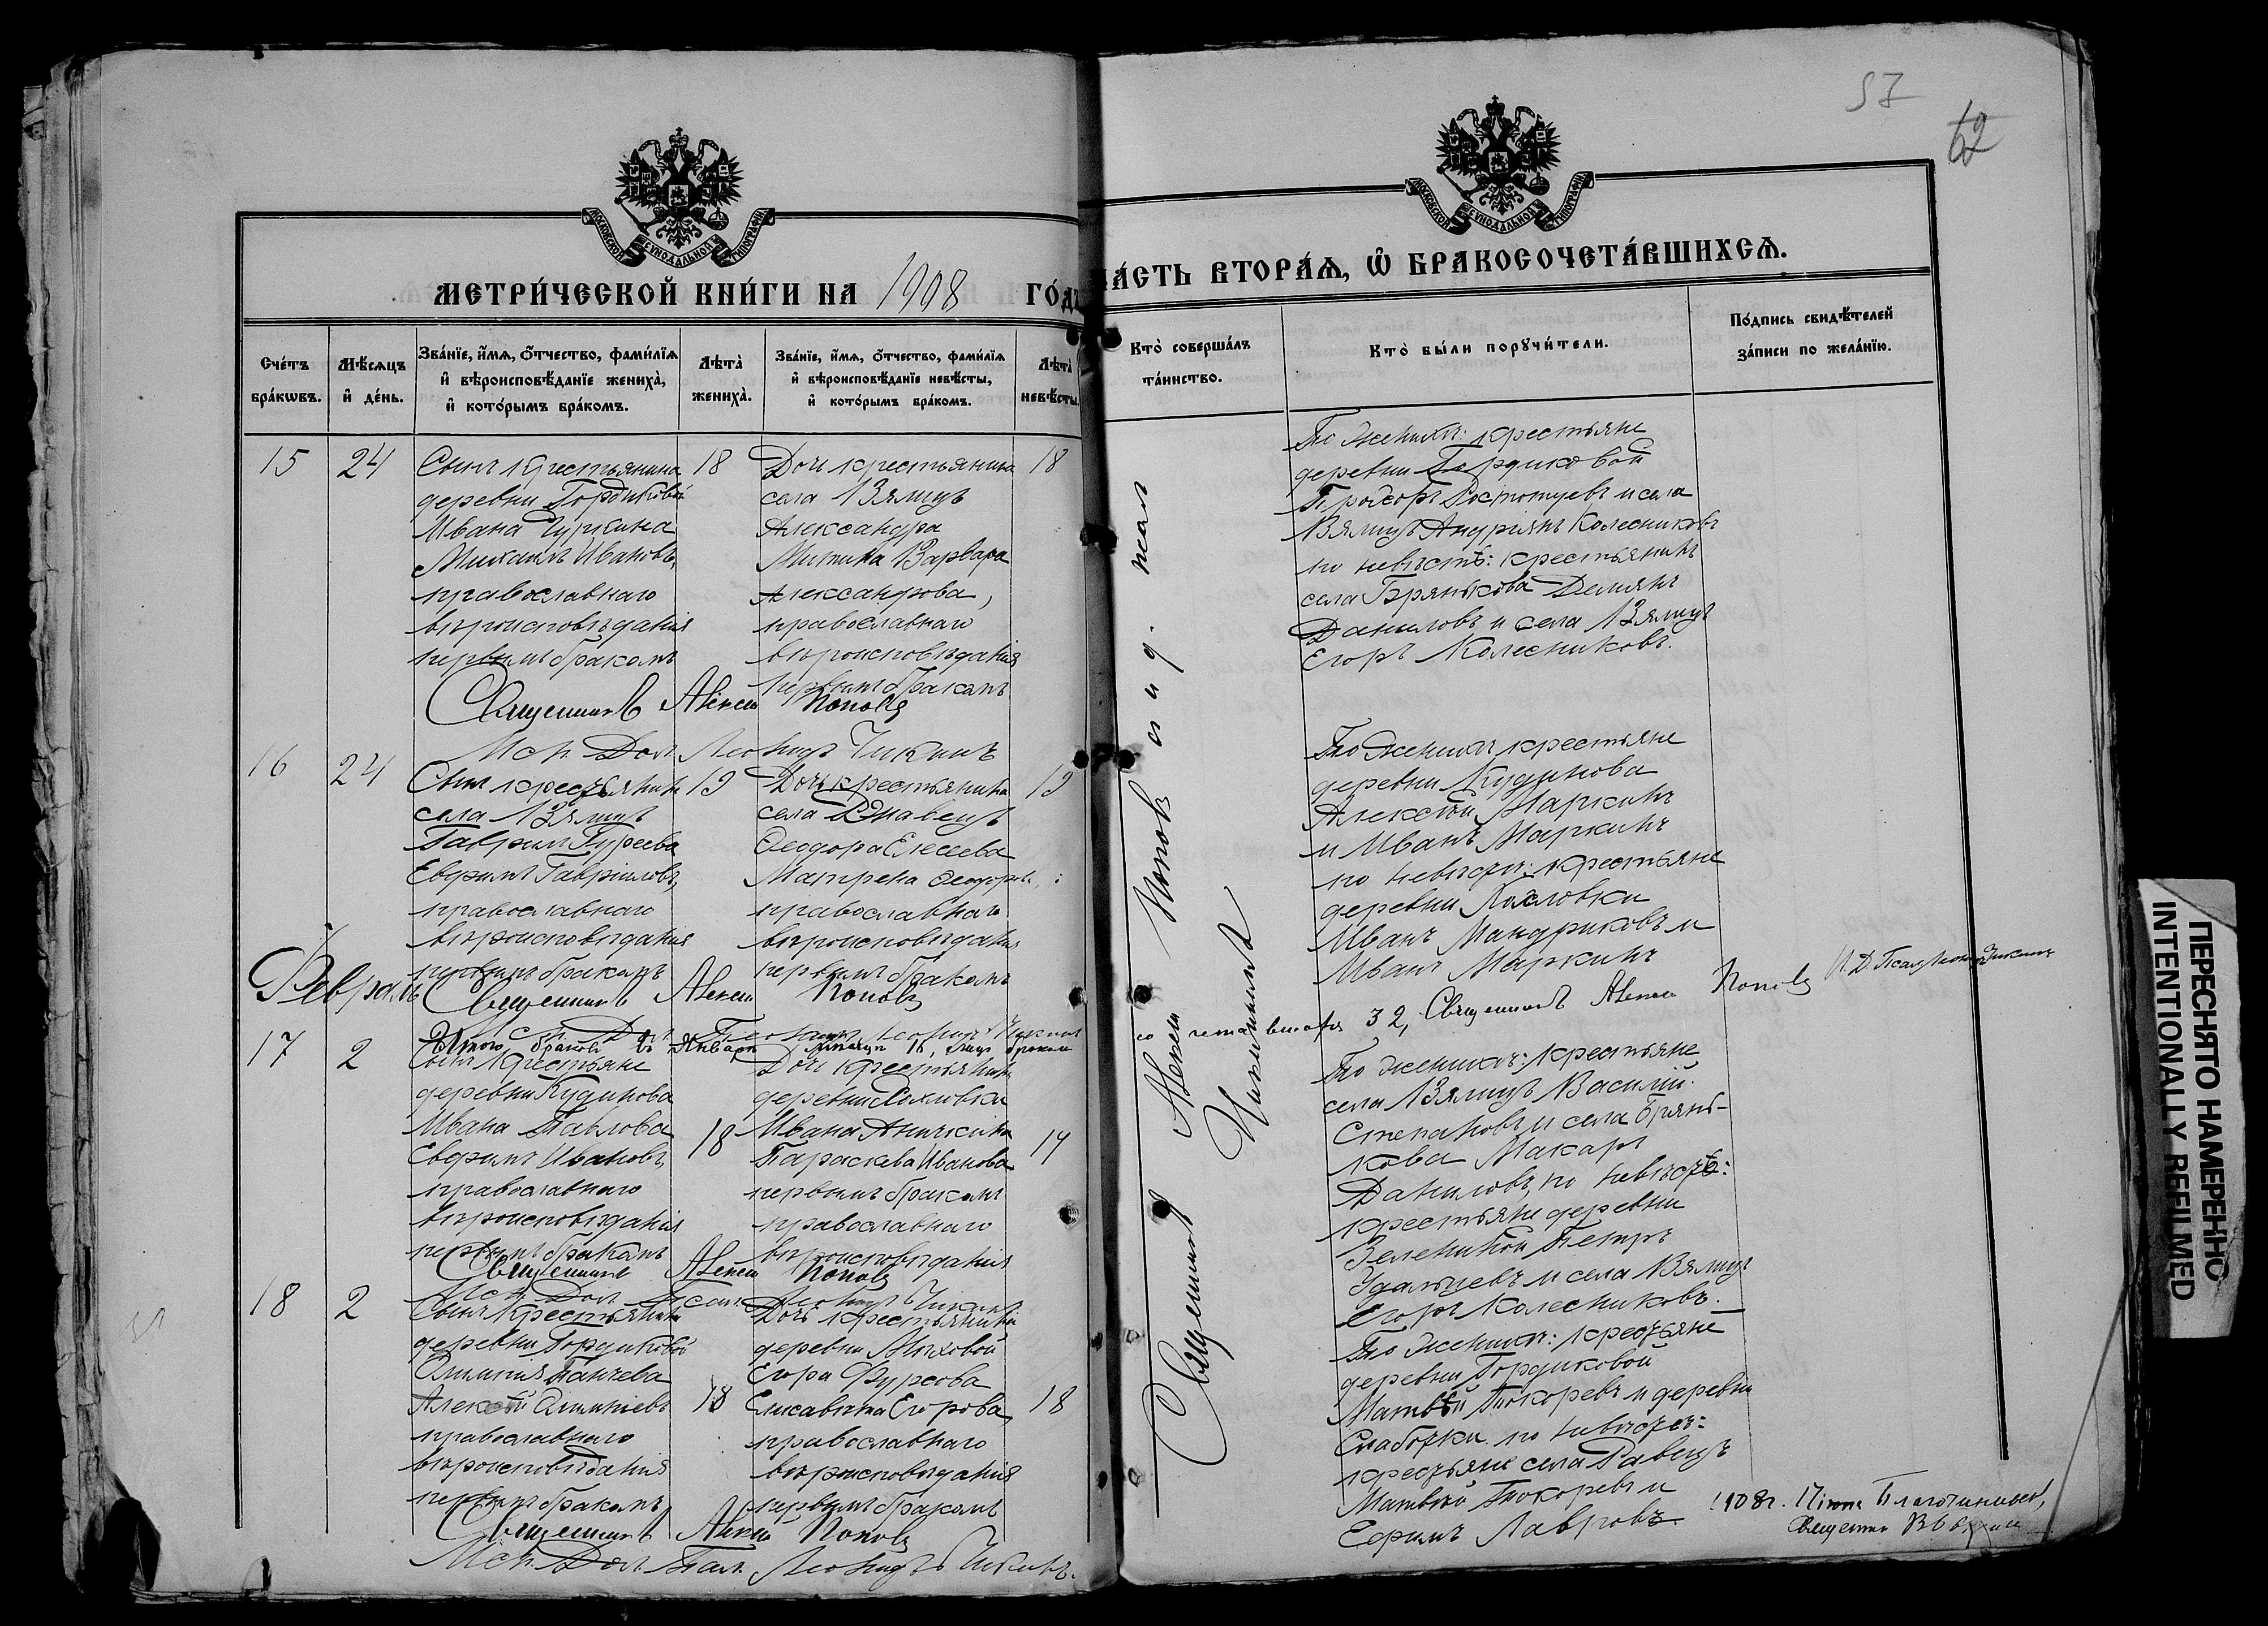 57
62
МОСКОВСКОЙ СѴНОДАЛЬНОЙ ТИПОГРАФІИ
МОСКОВСКОЙ СѴНОДАЛЬНОЙ ТИПОГРАФІИ
МЕТРИ́ЧЕСКОЙ КНИ́ГИ НА 1908 ГО́ДЪ
ЧА́СТЬ ВТОРА́Ѧ, Ѡ҆ БРАКОСОЧЕТА́ВШИХСѦ.
Сче́тъ бра́кѡвъ.
Мѣ́сяцъ и҆ де́нь.
Зва́нїе, и҆́мѧ, ѻ҆́тчество, фамїлїѧ
и҆ вѣроисповѣ́данїе жениха̀,
и҆ кото́рымъ бра́комъ.
Лѣта̀ жениха̀.
Зва́нїе, и҆́мѧ, ѻ҆́тчество, фамїлїѧ
и҆ вѣроисповѣ́данїе невѣ́сты,
и҆ кото́рымъ бра́комъ.
Лѣта̀ невѣ́сты.
Кто̀ соверша́лъ та́инство.
Кто̀ бы́ли порꙋчи́тели.
По́дпись свидѣ́телей за́писи по жела́нїю.
15
24
Сынъ крестьянина
деревни Гордиковой
Ивана Чуркина
Михаилъ Ивановъ,
православнаго
вѣроисповѣданія
первымъ бракомъ
18
Дочь крестьянина
села Вялицъ
Александра
Микина Варвара
Александрова,
православнаго
вѣроисповѣданія
первымъ бракомъ
18
По женихѣ: крестьяне
деревни Гордиковой
и села
Вялицъ Андріянъ Колесниковъ
по невѣстѣ: крестьянинъ
села Брянькова Демянъ
Даниловъ и села Вялицъ
Егоръ Колесниковъ.
Священникъ Алексѣй Поповъ
Исп. Дол. Леонидъ Чикинъ
16
24
Сынъ крестьянина
села Вялицъ
Гаврила Гуреева
Евфимъ Гавріиловъ,
православнаго
вѣроисповѣданія
первымъ бракомъ
19
Дочь крестьянина
села
Ѳеодора Елисеева
Матрена Ѳеодорова,
православнаго
вѣроисповѣданія
первымъ бракомъ
19
По женихѣ крестьяне
деревни Кудинова
Алексѣй Маркинъ
и Иванъ Маркинъ
по невѣстѣ: крестьяне
деревни
Иванъ Мандриковъ и
Иванъ Маркинъ
Священникъ Алексѣй Поповъ
Февраль
Итого браковъ въ Январѣ мѣсяцѣ 16,
32, Священникъ Алексѣй Поповъ
17
2
Сынъ крестьяне
деревни Кудинова
Ивана Павлова
Евфимъ Ивановъ,
православнаго
вѣроисповѣданія
первымъ бракомъ
18
Дочь крестьянина
деревни
Ивана Аничкина
Параскева Иванова
первымъ бракомъ
православнаго
вѣроисповѣданія
По женихѣ: крестьяне
села Вялицъ Василій
Степановъ и села Брянь-
кова Макаръ
Даниловъ, по невѣстѣ:
крестьяне деревни
Зеленикой Петръ
Удальцевъ и села Вялицъ
Егоръ Колесниковъ.
Священникъ Алексѣй Поповъ
Исп. Дол. Псал. Леонидъ Чикинъ
18
2
Сынъ крестьянина
деревни Гордиковой
Алексѣй
православнаго
вѣроисповѣданія
первымъ бракомъ
18
Дочь крестьянина
деревни Моховой
Егора Фурсова
Елисавета Егорова,
православнаго
вѣроисповѣданія
первымъ бракомъ
18
По женихѣ: крестьяне
деревни Гордиковой
Матвѣй Токоревъ и деревни
Слабодки по невѣстѣ:
крестьяне села
Матвѣй Токоревъ и
Ефимъ Лавровъ.
Священникъ Алексѣй Поповъ
Исп. Дол. Псал. Леонидъ Чикинъ.
Священникъ Алексѣй Поповъ
1908г. Благочинный,
Священникъ
ПЕРЕСНЯТО НАМЕРЕННО
INTENTIONALLY REFILMED